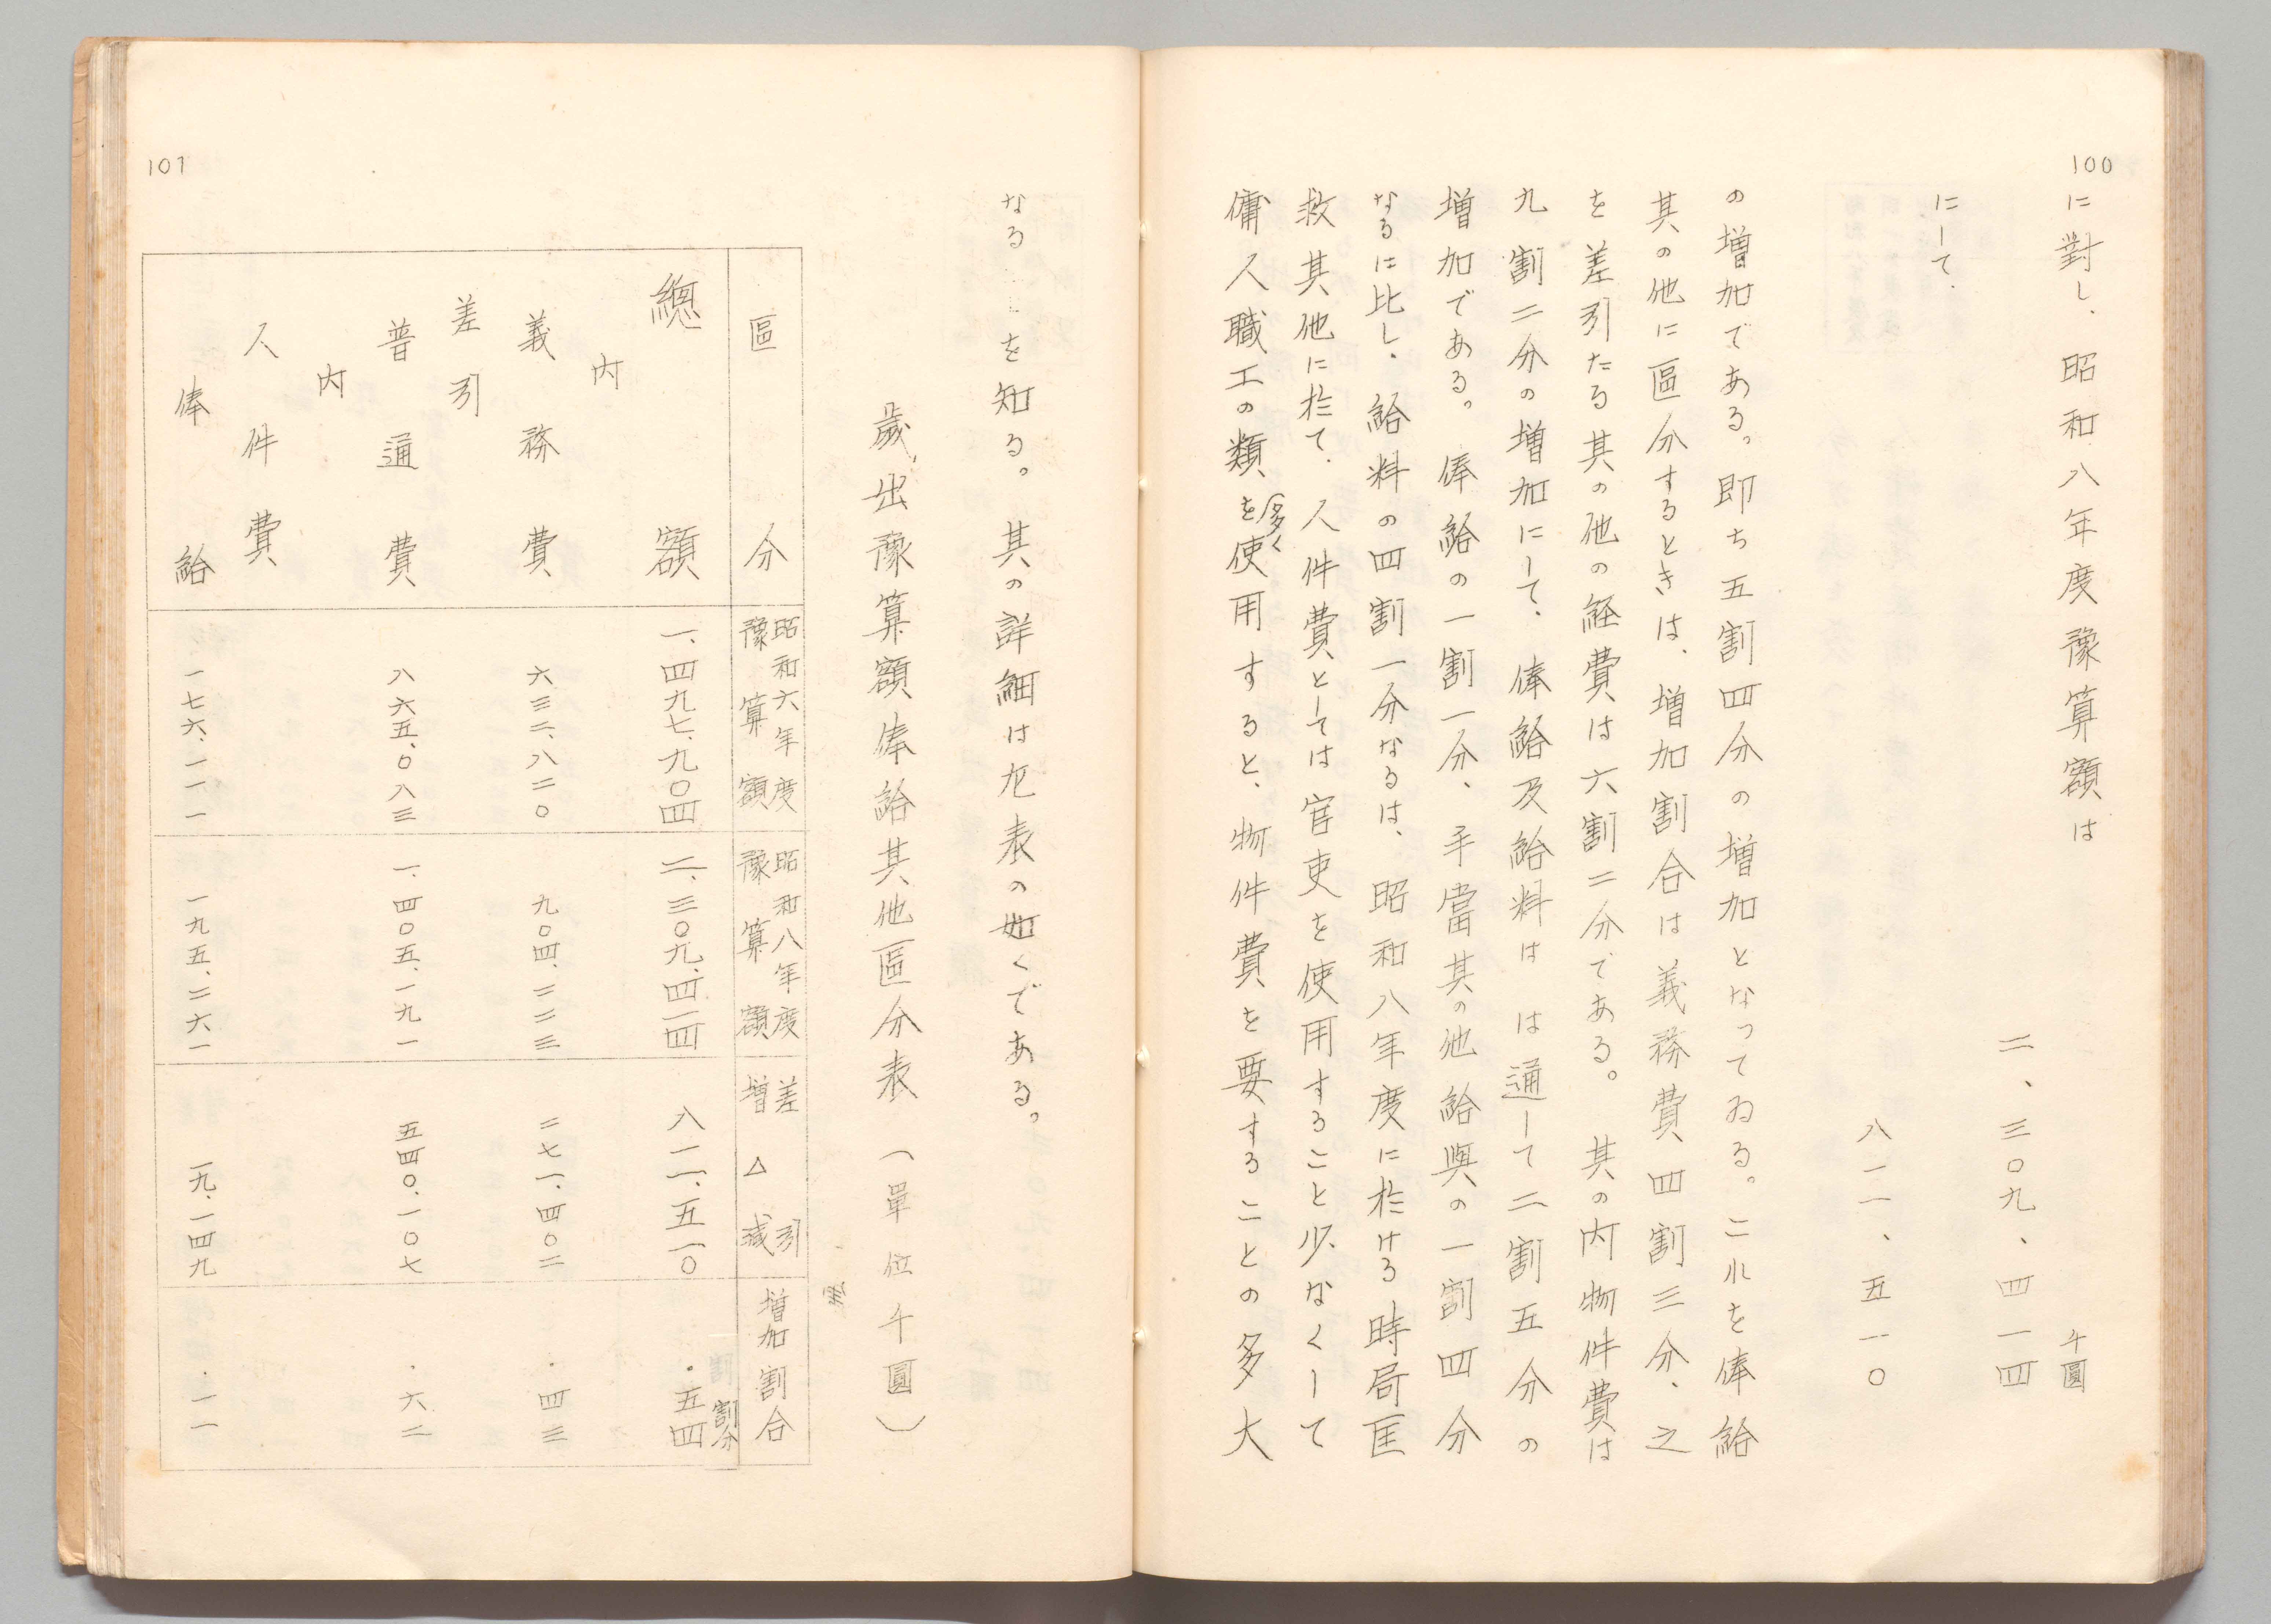 100
に對し、昭和八年度豫算額は
千圓
二、三〇九、四一四
にして、
八一一、五一〇
の増加である。即ち五割四分の増加となってゐる。これを俸給
其の他に區分するときは、増加割合は義務費四割三分、之
を差引たる其の他の経費は六割二分である。其の内物件費は
九割二分の増加にして、俸給及給料は は通して二割五分の
増加である。俸給の一割一分、手當其の他給與の一割四分
なるは比し、給料の四割一分なるは、昭和八年度に於ける時局匡
救其他に於て、人件費としては官吏を使用すること少なくして
傭人職工の類を多く使用すると、物件費を要することの多大
なる を知る。其の詳細は左表の如くである。
歳出豫算額俸給其他區分表(單位千圓)
區分
昭和六年度豫算額
昭和八年度豫算額
差引増△減
増加割合
割分
總額 一、四九七、九〇四 二、三〇九、四一四 八一一、五一〇 ・五四
内
義務費 六三二、八二〇 九〇四、二二三 二七一、四〇二 ・四三
差引
普通費 八六五、〇八三 一、四〇五、一九一 五四〇、一〇七 ・六二
内
人件費
俸給 一七六、一一一 一九五、二六一 一九、一四九 ・一一
101